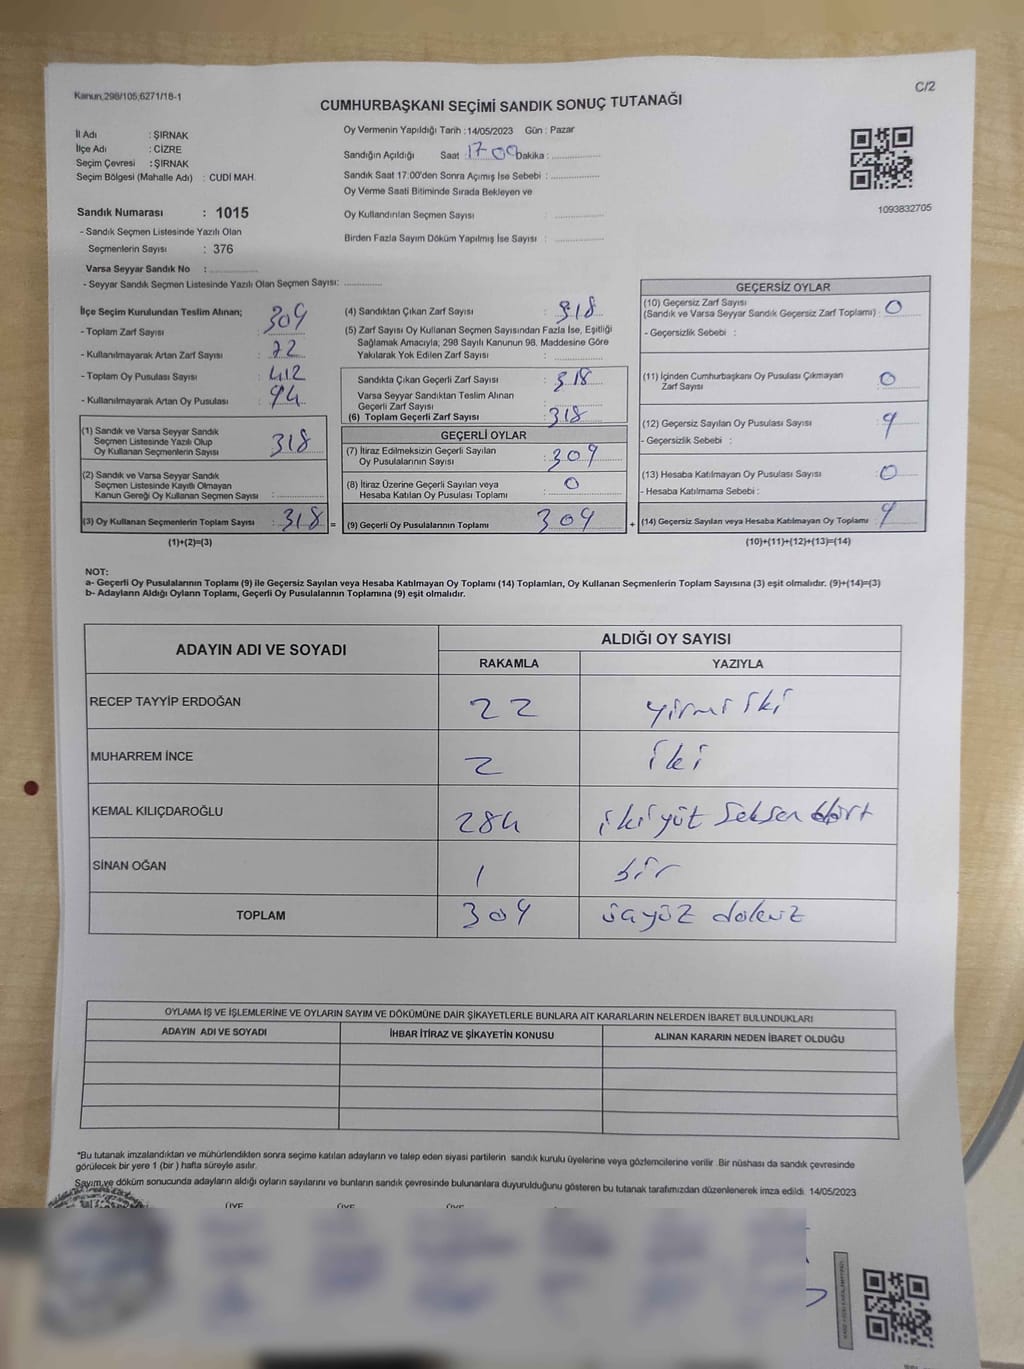 Kanun,298/105,6271/18-1
C/2
CUMHURBAŞKANI SEÇİMİ SANDIK SONUÇ TUTANAĞI
İl Adı : ŞIRNAK
İlçe Adı : CİZRE
Seçim Çevresi : ŞIRNAK
Seçim Bölgesi (Mahalle Adı) : CUDİ MAH.
Sandık Numarası : 1015
- Sandık Seçmen Listesinde Yazılı Olan
Seçmenlerin Sayısı : 376
Varsa Seyyar Sandık No : ..............
- Seyyar Sandık Seçmen Listesinde Yazılı Olan Seçmen Sayısı: ............
Oy Vermenin Yapıldığı Tarih : 14/05/2023 Gün : Pazar
Sandığın Açıldığı Saat :17 00 Dakika : ..............
Sandık Saat 17:00'den Sonra Açımış İse Sebebi : ..............
Oy Verme Saati Bitiminde Sırada Bekleyen ve
Oy Kullandırılan Seçmen Sayısı : ..............
Birden Fazla Sayım Döküm Yapılmış İse Sayısı : ..............
1093832705
İlçe Seçim Kurulundan Teslim Alınan;
- Toplam Zarf Sayısı :
- Kullanılmayarak Artan Zarf Sayısı :
- Toplam Oy Pusulası Sayısı : 412
- Kullanılmayarak Artan Oy Pusulası : 94
(1) Sandık ve Varsa Seyyar Sandık
Seçmen Listesinde Yazılı Olup
Oy Kullanan Seçmenlerin Sayısı : 318
(2) Sandık ve Varsa Seyyar Sandık
Seçmen Listesinde Kayıtlı Olmayan
Kanun Gereği Oy Kullanan Seçmen Sayısı : ..............
(3) Oy Kullanan Seçmenlerin Toplam Sayısı : 318 =
(1)+(2)=(3)
(4) Sandıktan Çıkan Zarf Sayısı : 318
(5) Zarf Sayısı Oy Kullanan Seçmen Sayısından Fazla İse, Eşitliği
Sağlamak Amacıyla; 298 Sayılı Kanunun 98. Maddesine Göre
Yakılarak Yok Edilen Zarf Sayısı : ..............
Sandıkta Çıkan Geçerli Zarf Sayısı : 318
Varsa Seyyar Sandıktan Teslim Alınan
Geçerli Zarf Sayısı : ..............
(6) Toplam Geçerli Zarf Sayısı : 318
GEÇERLİ OYLAR
(7) İtiraz Edilmeksizin Geçerli Sayılan
Oy Pusulalarının Sayısı : 309
(8) İtiraz Üzerine Geçerli Sayılan veya
Hesaba Katılan Oy Pusulası Toplamı : 0
(9) Geçerli Oy Pusulalarının Toplamı : 309 +
GEÇERSİZ OYLAR
(10) Geçersiz Zarf Sayısı
(Sandık ve Varsa Seyyar Sandık Geçersiz Zarf Toplamı) : 0
- Geçersizlik Sebebi :
(11) İçinden Cumhurbaşkanı Oy Pusulası Çıkmayan
Zarf Sayısı : 0
(12) Geçersiz Sayılan Oy Pusulası Sayısı : 9
- Geçersizlik Sebebi :
(13) Hesaba Katılmayan Oy Pusulası Sayısı : 0
- Hesaba Katılmama Sebebi :
(14) Geçersiz Sayılan veya Hesaba Katılmayan Oy Toplamı : 9
(10)+(11)+(12)+(13)=(14)
NOT:
a- Geçerli Oy Pusulalarının Toplamı (9) ile Geçersiz Sayılan veya Hesaba Katılmayan Oy Toplamı (14) Toplamları, Oy Kullanan Seçmenlerin Toplam Sayısına (3) eşit olmalıdır. (9)+(14)=(3)
b- Adayların Aldığı Oyların Toplamı, Geçerli Oy Pusulalarının Toplamına (9) eşit olmalıdır.
ADAYIN ADI VE SOYADI
ALDIĞI OY SAYISI
RAKAMLA YAZIYLA
RECEP TAYYİP ERDOĞAN 22 yirmi iki
MUHARREM İNCE 2 iki
KEMAL KILIÇDAROĞLU 284 ikiyüt seksen dört
SİNAN OĞAN 1 bir
TOPLAM 309 üayüz dokuz
OYLAMA İŞ VE İŞLEMLERİNE VE OYLARIN SAYIM VE DÖKÜMÜNE DAİR ŞİKAYETLERLE BUNLARA AİT KARARLARIN NELERDEN İBARET BULUNDUKLARI
ADAYIN ADI VE SOYADI İHBAR İTİRAZ VE ŞİKAYETİN KONUSU ALINAN KARARIN NEDEN İBARET OLDUĞU
*Bu tutanak imzalandıktan ve mühürlendikten sonra seçime katılan adayların ve talep eden siyasi partilerin sandık kurulu üyelerine veya gözlemcilerine verilir .Bir nüshası da sandık çevresinde
görülecek bir yere 1 (bir ) hafta süreyle asılır.
Sayım ve döküm sonucunda adayların aldığı oyların sayılarını ve bunların sandık çevresinde bulunanlara duyurulduğunu gösteren bu tutanak tarafımızdan düzenlenerek imza edildi. 14/05/2023
ÜYE ÜYE ÜYE